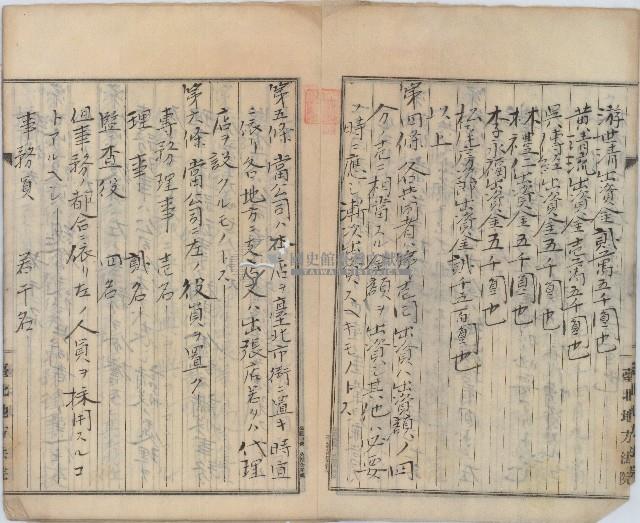 游世清出資金貳萬五千圓也
黄清流出資金壱萬五千圓也
出資金五千圓也
出資金五千圓也
李永福出資金五千圓也
出資金貳千五百圓也
以上
第四條 各共同者ハ第壱回ハ出資額ノ四
分ノ壱ニ相當スル金額ヲ出資シ其他ハ必要
ノ時ニ應シ漸次出資スヘキモノトス
第五條 當公司ハ本店ヲ臺北市街ニ置キ時宜
ニ依リ各地方ニ支店又ハ出張店若クハ代理
店ヲ設クルモノトス
第六條 當公司ニ左ノ役員ヲ置ク
專務理事 壱名
理事 貳名
監査役 四名
但事務ノ都合ニ依リ左ノ人員ヲ採用スルコ
トアルヘシ
事務員 若干名
臺北地方法院
國史館臺灣文獻館